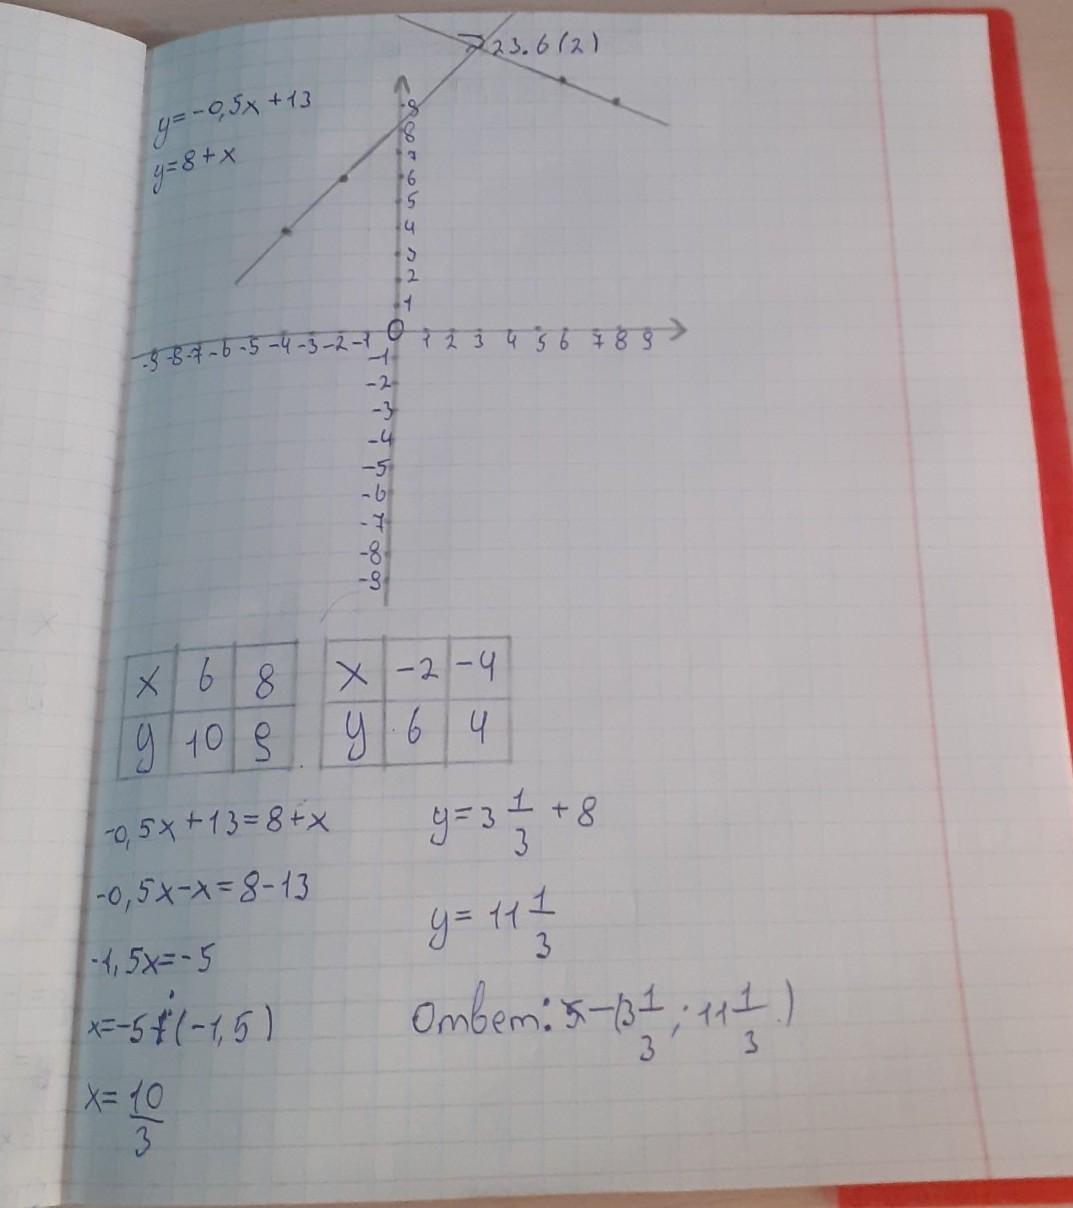 23.6(2)
y=-0,5x+13
y=8+x
9
8
7
6
5
4
3
2
1
0
-9 -8 -7 -6 -5 -4 -3 -2 -1 1 2 3 4 5 6 7 8 9
-1
-2
-3
-4
-5
-6
-7
-8
-9
x 6 8
y 10 9
x -2 -4
y 6 4
-0,5x+13=8+x
-0,5x-x=8-13
-1,5x=-5
x=-5:(-1,5)
x=10/3
y=3 1/3+8
y=11 1/3
Ответ: (3 1/3; 11 1/3)